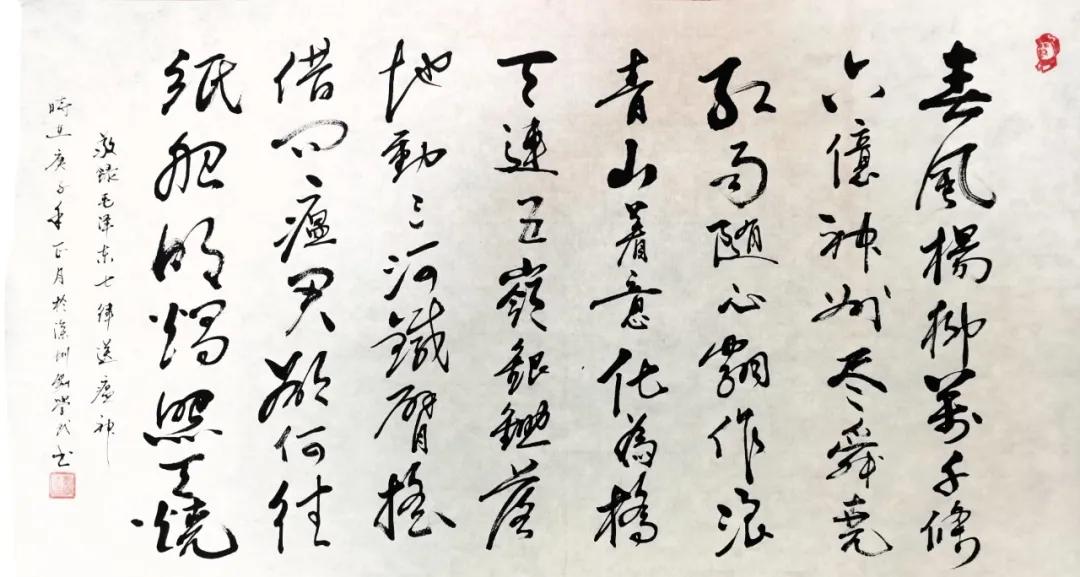 春風楊柳萬千條
六億神州尽舜堯
红雨随心翻作浪
青山着意化為橋
天連五嶺銀鋤落
地動三河鐵臂搖
借问瘟君欲何往
紙船明燭照天燒
敬錄毛泽东七律送瘟神
時在庚子年正月於深圳 书